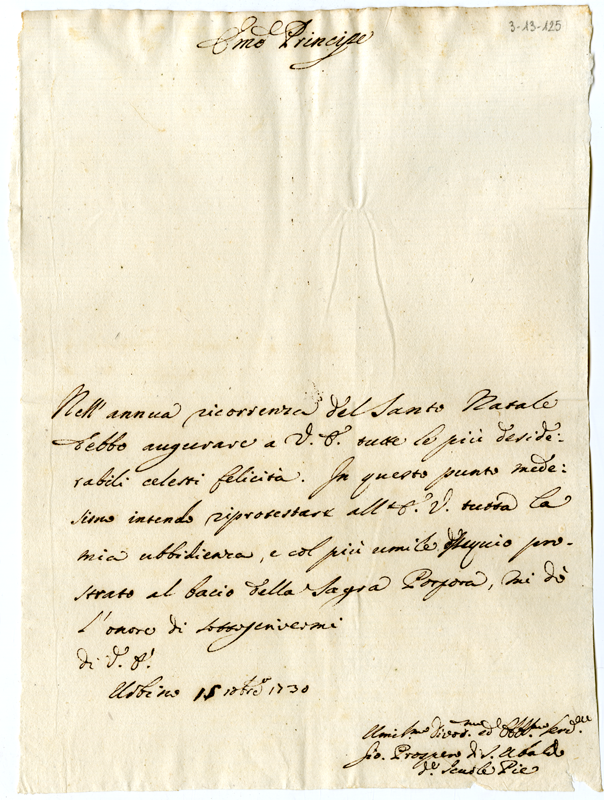 3-13-125
Emo Principe
Nell'annua ricorrenza del Santo Natale
debbo augurare a V. E. tutte le più deside:
rabili celesti felicità. In questo punto mede:
simo intendo riprotestare all'E. V. tutta la
mia ubbidienza, e col più umile ossequio pro-
strato al bacio della Sagra Porpora, mi dò
l'onore di sottoscrivermi
di V. E.
Urbino 15 xbre 1730
Umilmo Divotmo ed Obblmo Serre
Gio. Prospero di S. Ubaldo
d. Scuole Pie